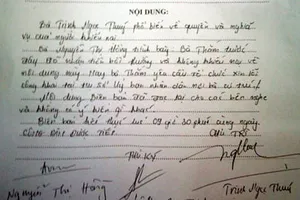 NỘI DUNG:
Bà Trịnh Ngọc Thuý phổ biến về quyền và nghĩa
vụ của người khiếu nại
Bà Nguyễn Thị Hồng trình bày: Bà Thắm trước
đây đã nhận tiền bồi thường và không khiếu nại về
nội dung này. Nay bà Thắm yêu cầu tổ chức xin lỗi
công khai tại trụ sở Uỷ ban nhân dân nơi bà cư trú.
Nội dung biên bản đã đọc lại cho các bên nghe
và không có ý kiến gì khác.
Biên bản kết thúc lúc 09 giờ 30 phút cùng ngày
THƯ KÝ
CHỦ TRÌ
Nguyễn Thị Hồng
Trịnh Ngọc Thuý